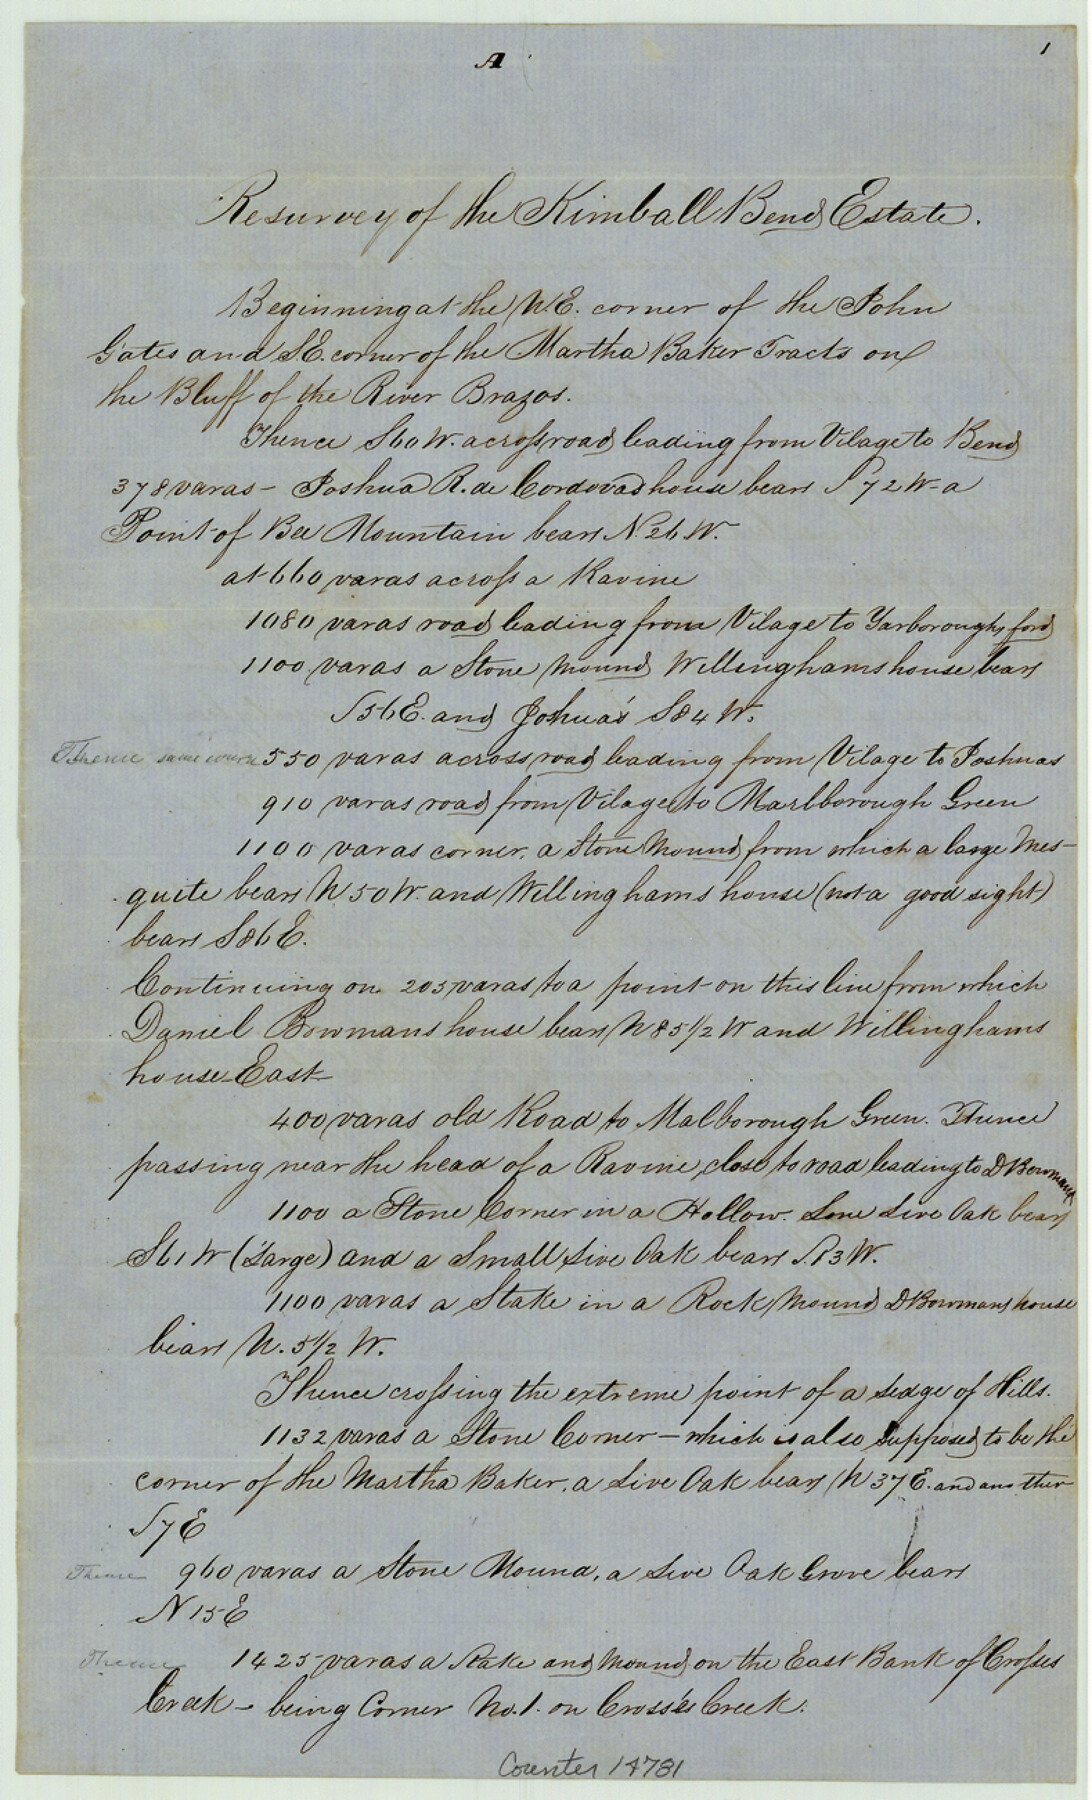 A
1
Resurvey of the Kimball Bend Estate.
Beginning at the N.E. corner of the John
Gates and S.E. corner of the Martha Baker Tracts on
the Bluff of the River Brazos.
Thence S60W. across road leading from Vilage to Bend
378 varas - Joshua R. de Cordovas house bears S 72 W - a
Point of Bee Mountain bears N.26 W.
at 660 varas across a Ravine
1080 varas road leading from Vilage to Yarboroughs ford
1100 varas a Stone Mound Willinghams house bears
S56E. and Joshua's S84W.
Thence same course 550 varas across road leading from Vilage to Joshuas
910 varas road from Vilage to Marlborough Green
1100 varas corner, a Stone Mound from which a large Mes-
quite bears N50W. and Willinghams house (not a good sight)
bears S86E.
Continuing on 205 varas to a point on this line from which
Daniel Bowmans house bears N85½W and Willinghams
house East
400 varas old Road to Malborough Green. Thence
passing near the head of a Ravine, close to road leading to D Bowmans
1100 a Stone Corner in a Hollow. Lone Live Oak bears
S61W (Large) and a Small Live Oak bears S.83W.
1100 varas a Stake in a Rock Mound D Bowmans house
bears N. 5½ W.
Thence crossing the extreme point of a Ledge of Hills.
1132 varas a Stone Corner - which is also supposed to be the
corner of the Martha Baker, a Live Oak bears N37E. and another
S7E
Thence 960 varas a Stone Mound, a Live Oak Grove bears
N15E
Thence 1425 varas a Stake and Mound on the East Bank of Crosses
Creek - being Corner No.1. on Cross'es Creek.
Counter 14781